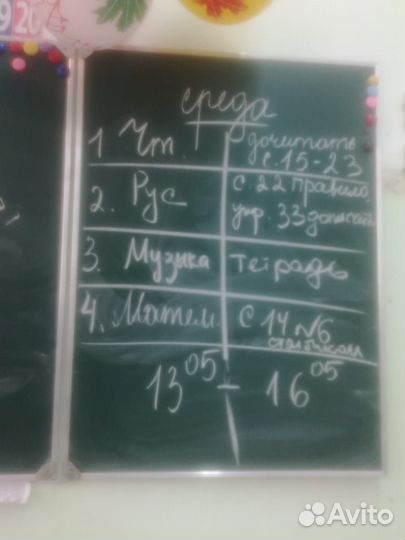 9 20
среда
1 Чт. дочитать
с. 15-23
2. Рус с. 22 правило,
упр. 33 дописать
3. Музыка тетрадь
4. Матем с 14 №6
столбиком
13 05 - 16 05
Avito